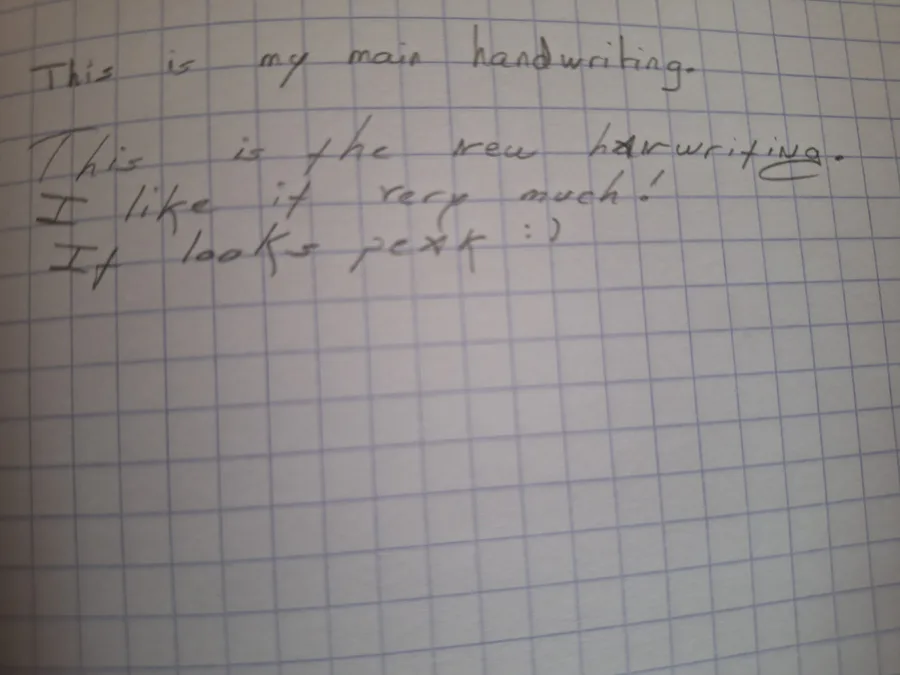 This is my main handwriting.
This is the new harwriting.
I like it very much!
It looks peak :)